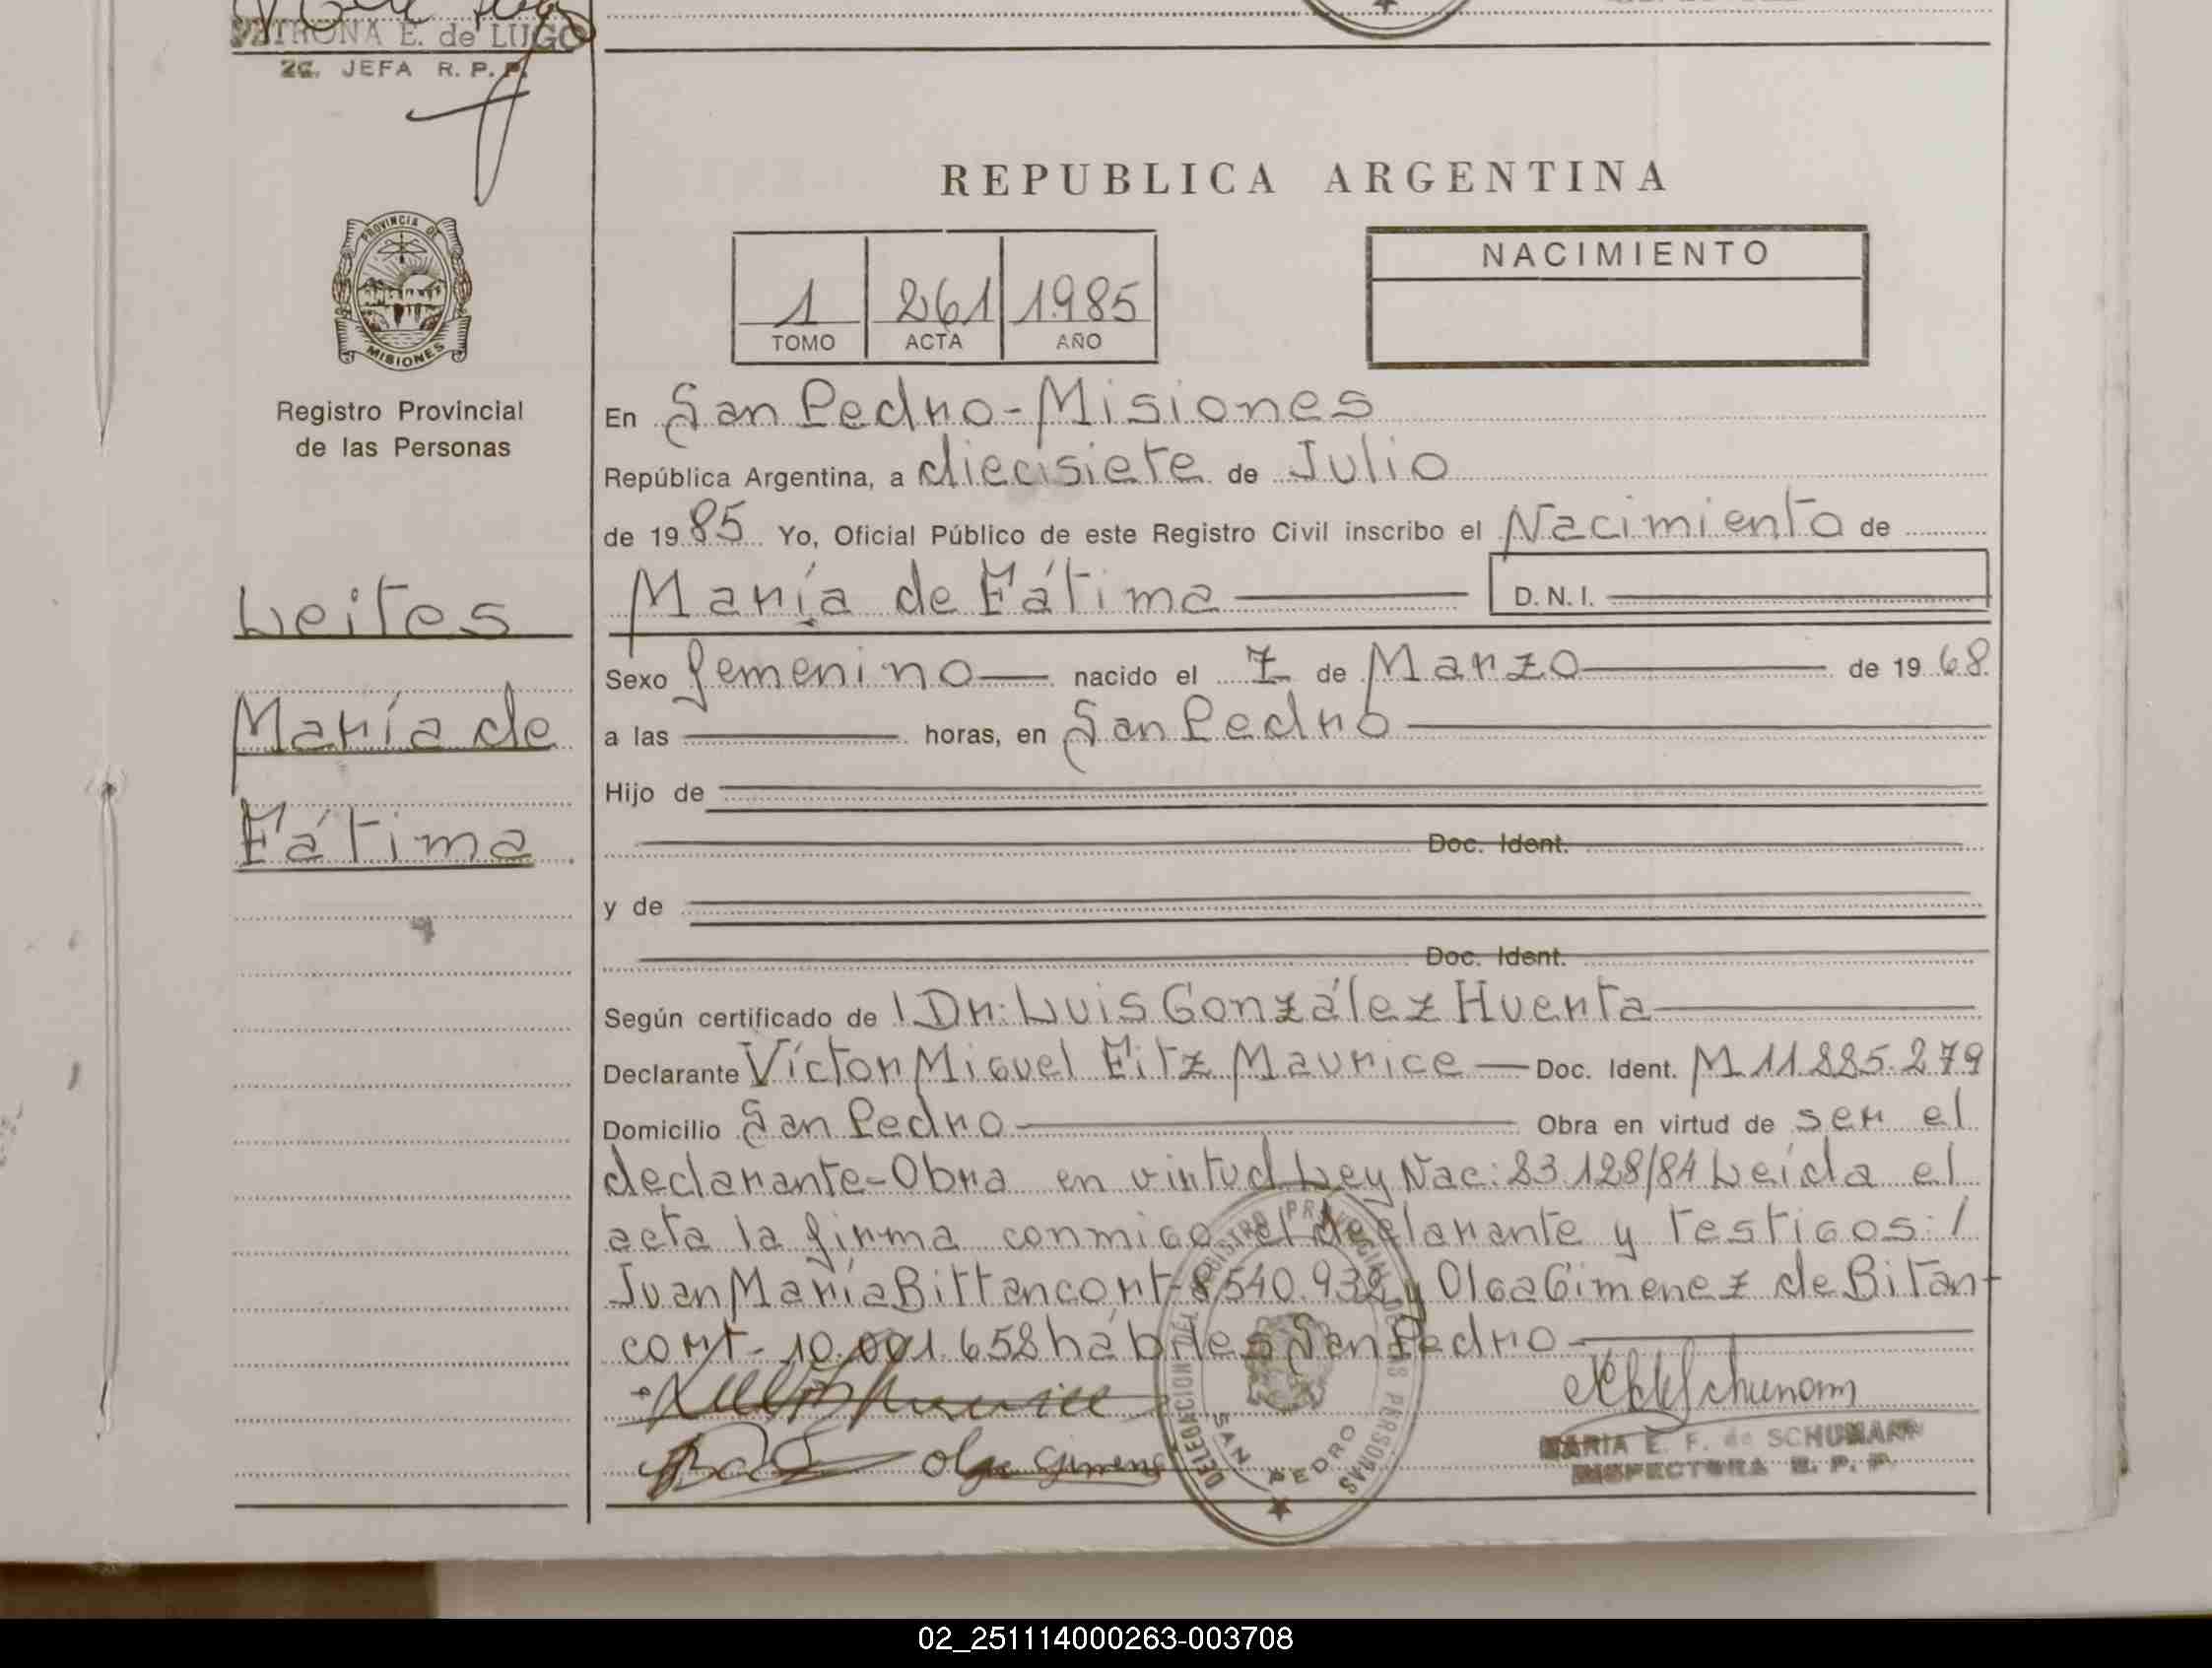 PETRONA E. de LUGO
2a. JEFA R. P. P.
REPUBLICA ARGENTINA
PROVINCIA DE
MISIONES
1 261 1985
TOMO ACTA AÑO
NACIMIENTO
Registro Provincial
de las Personas
Leites
María de
Fátima
En San Pedro-Misiones
República Argentina, a diecisiete de Julio
de 1985 Yo, Oficial Público de este Registro Civil inscribo el Nacimiento de
María de Fátima D. N. I.
Sexo femenino nacido el 7 de Marzo de 1968
a las horas, en San Pedro
Hijo de
Doc. Ident.
y de
Doc. Ident.
Según certificado de Dr: Luis González Huerta
Declarante Víctor Miguel Fitz Maurice Doc. Ident. M 11.885.279
Domicilio San Pedro Obra en virtud de ser el
declarante-Obra en virtud Ley Nac: 23.128/84 Leída el
acta la firma conmigo el declarante y testigos: /
Juan María Bittancort-8.540.932 y Olga Gimenez de Bitan-
cort- 10.001.658 hábiles San Pedro-
Olga Gimenez
MARIA E. F. de SCHUMANN
INSPECTORA R. P. P.
DELEGACION DEL REGISTRO PROVINCIAL DE LAS PERSONAS
SAN PEDRO
02_251114000263-003708